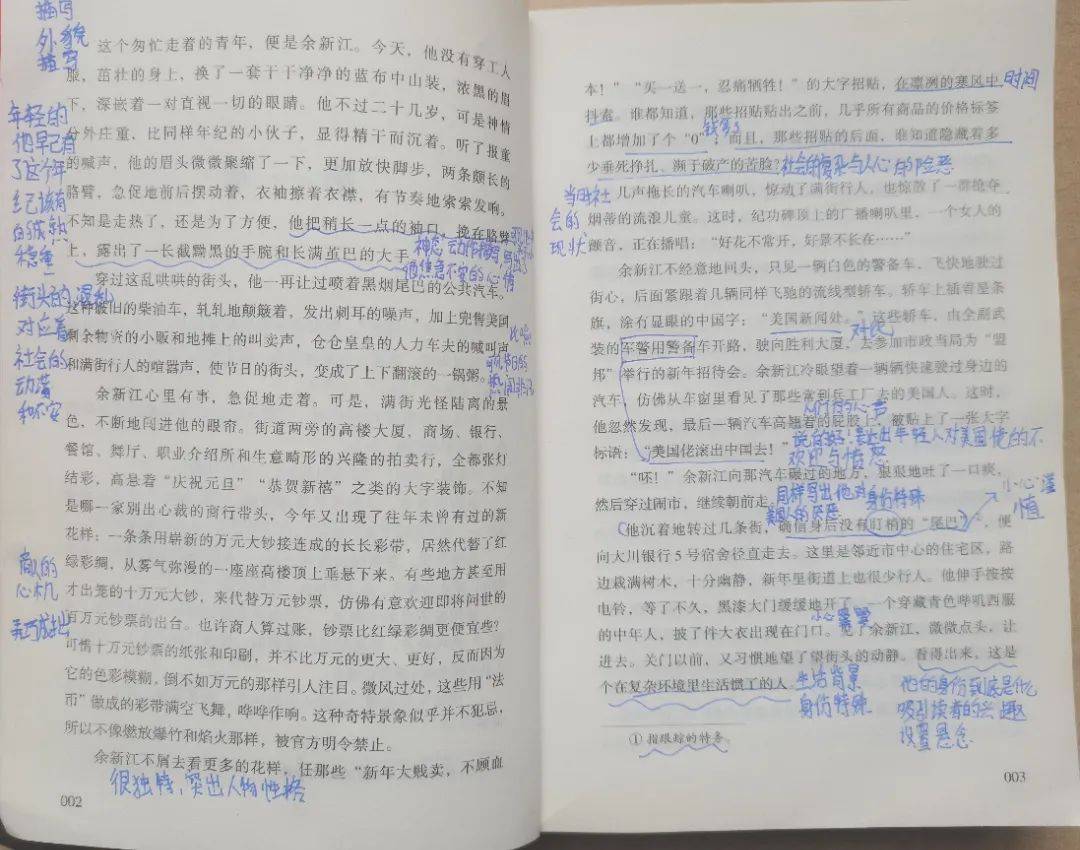 描写
外貌
描写
这个匆忙走着的青年，便是余新江。今天，他没有穿工人
服，茁壮的身上，换了一套干干净净的蓝布中山装，浓黑的眉
下，深嵌着一对直视一切的眼睛。他不过二十几岁，可是神情
分外庄重，比同样年纪的小伙子，显得精干而沉着。听了报童
的喊声，他的眉头微微聚缩了一下，更加放快脚步，两条颀长的
胳臂，急促地前后摆动着，衣袖擦着衣襟，有节奏地索索发响。
不知是走热了，还是为了方便，他把稍长一点的袖口，挽在胳臂
上，露出了一长截黝黑的手腕和长满茧巴的大手。
年轻的
他早已有
了这个年
纪已该有
的成熟
稳重
神态 动作描写
他焦急不安的心情
穿过这乱哄哄的街头，他一再让过喷着黑烟尾巴的公共汽车。
这种破旧的柴油车，轧轧地颠簸着，发出刺耳的噪声，加上兜售美国
剩余物资的小贩和地摊上的叫卖声，仓仓皇皇的人力车夫的喊叫声
和满街行人的喧嚣声，使节日的街头，变成了上下翻滚的一锅粥。
街头的混乱
对应着
社会的
动荡
和不安
比喻
节日的
余新江心里有事，急促地走着。可是，满街光怪陆离的景
色，不断地闯进他的眼帘。街道两旁的高楼大厦，商场、银行、
餐馆、舞厅、职业介绍所和生意畸形的兴隆的拍卖行，全都张灯
结彩，高悬着“庆祝元旦”“恭贺新禧”之类的大字装饰。不知
是哪一家别出心裁的商行带头，今年又出现了往年未曾有过的新
花样：一条条用崭新的万元大钞接连成的长长彩带，居然代替了红
绿彩绸，从雾气弥漫的一座座高楼顶上垂悬下来。有些地方甚至用
才出笼的十万元大钞，来代替万元钞票，仿佛有意欢迎即将问世的
百万元钞票的出台。也许商人算过账，钞票比红绿彩绸更便宜些？
可惜十万元钞票的纸张和印刷，并不比万元的更大、更好，反而因为
它的色彩模糊，倒不如万元的那样引人注目。微风过处，这些用“法
币”做成的彩带满空飞舞，哗哗作响。这种奇特景象似乎并不犯忌，
所以不像燃放爆竹和焰火那样，被官方明令禁止。
商人的
心机
弄巧成拙
余新江不屑去看更多的花样，任那些“新年大贱卖，不顾血
很独特，突出人物性格
002
本！”“买一送一，忍痛牺牲！”的大字招贴，在凛冽的寒风中
时间
抖索。谁都知道，那些招贴贴出之前，几乎所有商品的价格标签
上都增加了个“0”；而且，那些招贴的后面，谁知道隐藏着多
少垂死挣扎、濒于破产的苦脸？
社会的复杂与人心的险恶
当时社
会的
现状
几声拖长的汽车喇叭，惊动了满街行人，也惊散了一群抢夺
烟蒂的流浪儿童。这时，纪功碑顶上的广播喇叭里，一个女人的
颤音，正在播唱：“好花不常开，好景不长在……”
余新江不经意地回头，只见一辆白色的警备车，飞快地驶过
街心，后面紧跟着几辆同样飞驰的流线型轿车。轿车上插着星条
旗，涂有显眼的中国字：“美国新闻处。”这些轿车，由全副武
装的军警用警备车开路，驶向胜利大厦，去参加市政当局为“盟
对比
邦”举行的新年招待会。余新江冷眼望着一辆辆快速驶过身边的
汽车，仿佛从车窗里看见了那些常到兵工厂去的美国人。这时，
人们的心声
他忽然发现，最后一辆汽车高翘着的屁股上，被贴上了一张大字
标语：“美国佬滚出中国去！”
说的好！表达出年轻人对美国佬的不
欢迎与愤怒
“呸！”余新江向那汽车碾过的地方，狠狠地吐了一口痰，
然后穿过闹市，继续朝前走。
同样写出他对
美国人的厌恶
身份特殊
小心谨
慎
他沉着地转过几条街，确信身后没有盯梢的“尾巴”，便
向大川银行5号宿舍径直走去。这里是邻近市中心的住宅区，路
边栽满树木，十分幽静，新年里街道上也很少行人。他伸手按按
电铃，等了不久，黑漆大门缓缓地开了，一个穿藏青色哔叽西服
的中年人，披了件大衣出现在门口。见了余新江，微微点头，让
进去。关门以前，又习惯地望了望街头的动静。看得出来，这是
个在复杂环境里生活惯了的人。
生活背景
身份特殊
他的身份到底是什么
吸引读者的兴趣
设置悬念
① 指跟踪的特务。
003